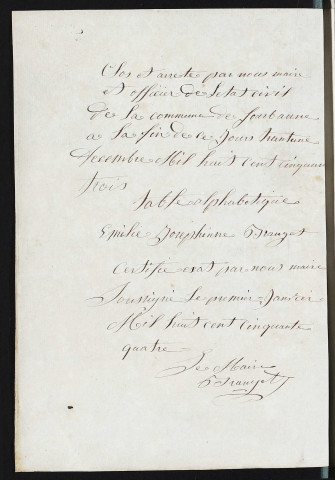 Clos et arreté par nous maire
et officier de l'etat civil
de la commune de
a la fin de ce jours trentune
decembre Mil huit cent cinquante
trois
table alphabetique
Emilie Josephinne
Certifié exat par nous maire
Soussigné le premier Janvier
Mil huit cent cinquante
quatre
Le Maire